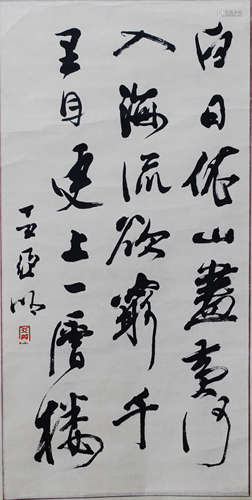 白日依山盡黃河
入海流欲窮千
里目更上一層樓
亞明